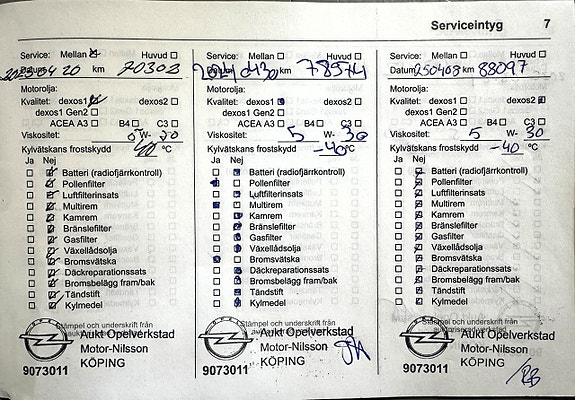 Serviceintyg 7
Service: Mellan ☒ Huvud ☐
Datum 2023 04 20 km 70303
Motorolja:
Kvalitet: dexos1 ☑ dexos2 ☐
dexos1 Gen2 ☐
ACEA A3 ☐ B4 ☐ C3 ☐
Viskositet: W-
Kylvätskans frostskydd 40 °C
Ja Nej
Batteri (radiofjärrkontroll)
Pollenfilter
Luftfilterinsats
Multirem
Kamrem
Bränslefilter
Gasfilter
Växellådsolja
Bromsvätska
Däckreparationssats
Bromsbelägg fram/bak
Tändstift
Kylmedel
Stämpel och underskrift från
Aukt Opelverkstad
Motor-Nilsson
9073011 KÖPING
Service: Mellan ☐ Huvud ☐
km
Motorolja:
Kvalitet: dexos1 dexos2 ☐
dexos1 Gen2 ☐
ACEA A3 ☐ B4 ☐ C3 ☐
Viskositet: 5 W- 30
Kylvätskans frostskydd -40 °C
Ja Nej
Batteri (radiofjärrkontroll)
Pollenfilter
Luftfilterinsats
Multirem
Kamrem
Bränslefilter
Gasfilter
Växellådsolja
Bromsvätska
Däckreparationssats
Bromsbelägg fram/bak
Tändstift
Kylmedel
Stämpel och underskrift från
Aukt Opelverkstad
Motor-Nilsson
9073011 KÖPING
Service: Mellan ☐ Huvud ☐
Datum 250403 km 88097
Motorolja:
Kvalitet: dexos1 ☐ dexos2
dexos1 Gen2 ☐
ACEA A3 ☐ B4 ☐ C3 ☐
Viskositet: 5 W- 30
Kylvätskans frostskydd -40 °C
Ja Nej
Batteri (radiofjärrkontroll)
Pollenfilter
Luftfilterinsats
Multirem
Kamrem
Bränslefilter
Gasfilter
Växellådsolja
Bromsvätska
Däckreparationssats
Bromsbelägg fram/bak
Tändstift
Kylmedel
Stämpel och underskrift från
Aukt Opelverkstad
Motor-Nilsson
9073011 KÖPING